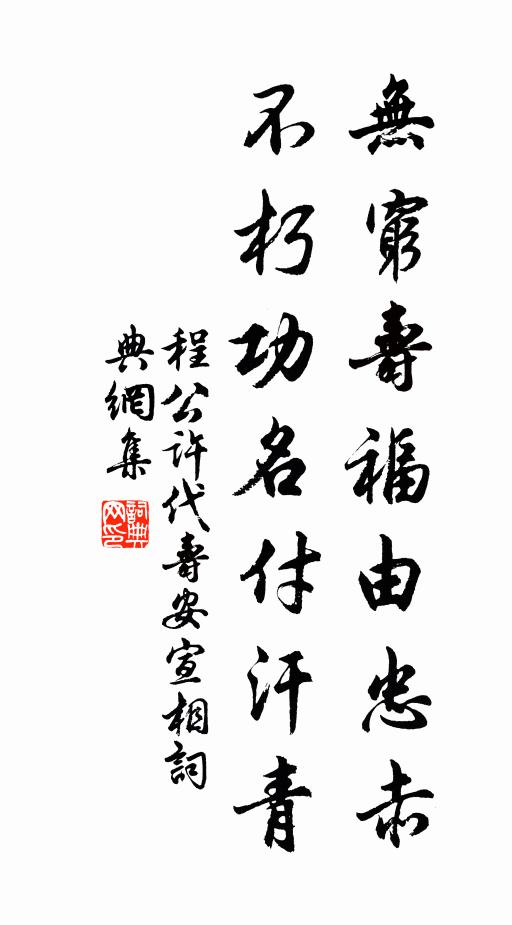 無窮壽福由忠赤
不朽功名付汗青
程公許代壽安宣相詞
典網集
詞典网印